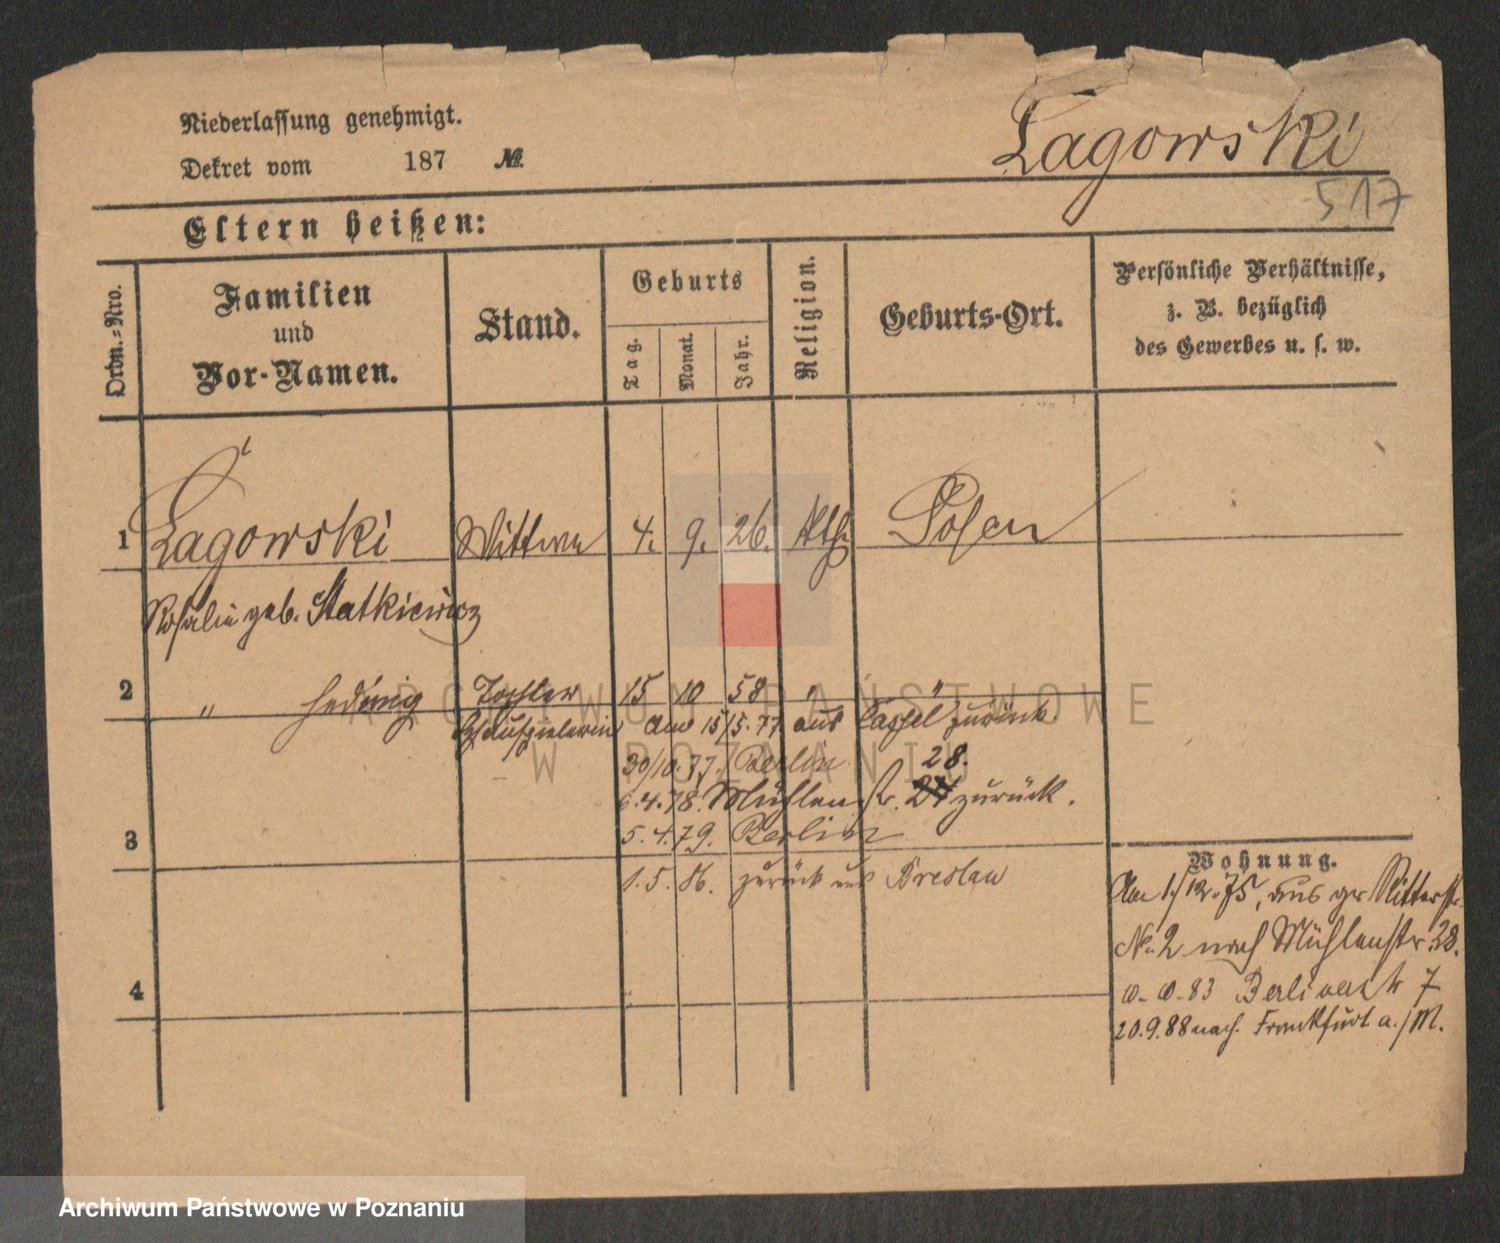 Niederlassung genehmigt.
Dekret vom 187 №
Łagowski
517
Eltern heißen:
Ordn.-Nro.
Familien und Vor-Namen.
Stand.
Geburts
Tag.
Monat.
Jahr.
Religion.
Geburts-Ort.
Persönliche Verhältnisse,
z. B. bezüglich
des Gewerbes u. s. w.
1 Łagowski Wittwe 4. 9. 26. kth. Posen
Rosalie geb. Statkiewicz
2 " Hedwig Tochter 15 10 58 " "
Schauspielerin Am 15/5. 77 aus Cassel zurück.
30/10. 77. Berlin
6. 4. 78. Mühlenstr. 28. zurück.
3 5. 4. 79. Berlin
1. 5. 86. zurück aus Breslau
Wohnung.
Am 1/12. 75, aus gr Ritterstr.
No. 2 nach Mühlenstr 38.
83
4
20. 9. 88 nach Frankfurt a./M.
ARCHIWUM PAŃSTWOWE
W POZNANIU
Archiwum Państwowe w Poznaniu